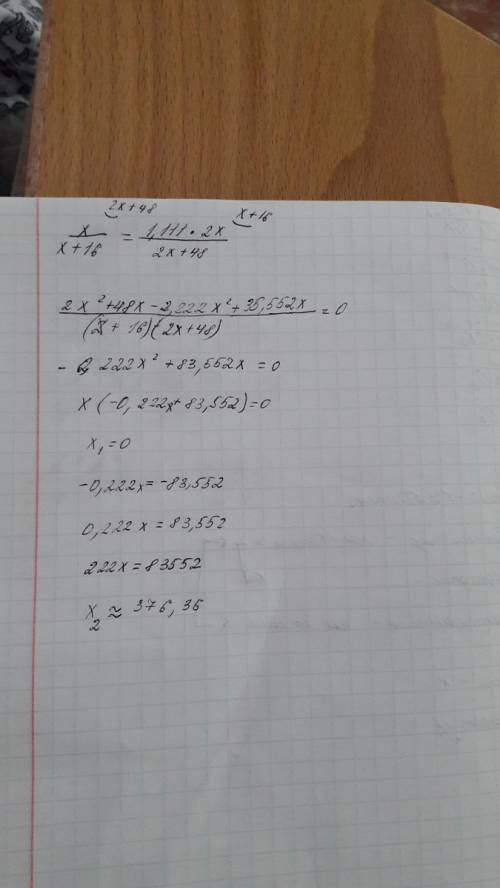 2x+48 x+16
x/(x+16) = (1,111 · 2x)/(2x+48)
(2x² + 48x - 2,222x² + 35,552x)/((x + 16)(2x+48)) = 0
- 0,222x² + 83,552x = 0
x(-0,222x + 83,552) = 0
x₁ = 0
-0,222x = -83,552
0,222x = 83,552
222x = 83552
x₂ ≈ 376,36